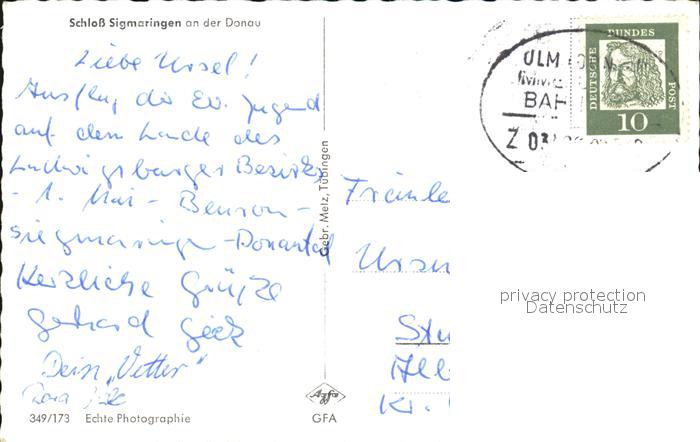 Schloß Sigmaringen an der Donau
Liebe Ursel!
Ausflug der Ev. Jugend
auf dem Lande des
Ludwigsburger Bezirks
- 1. Mai - Beuron -
Sigmaringen - Donautal
Herzliche Grüße
Gerhard
Dein "Vetter"
349/173 Echte Photographie
Gebr. Metz, Tübingen
Agfa
GFA
Fräule
Ursu
Stu
All
Kr.
ULM
BAH
Z 03
DEUTSCHE BUNDES POST
10
privacy protection
Datenschutz